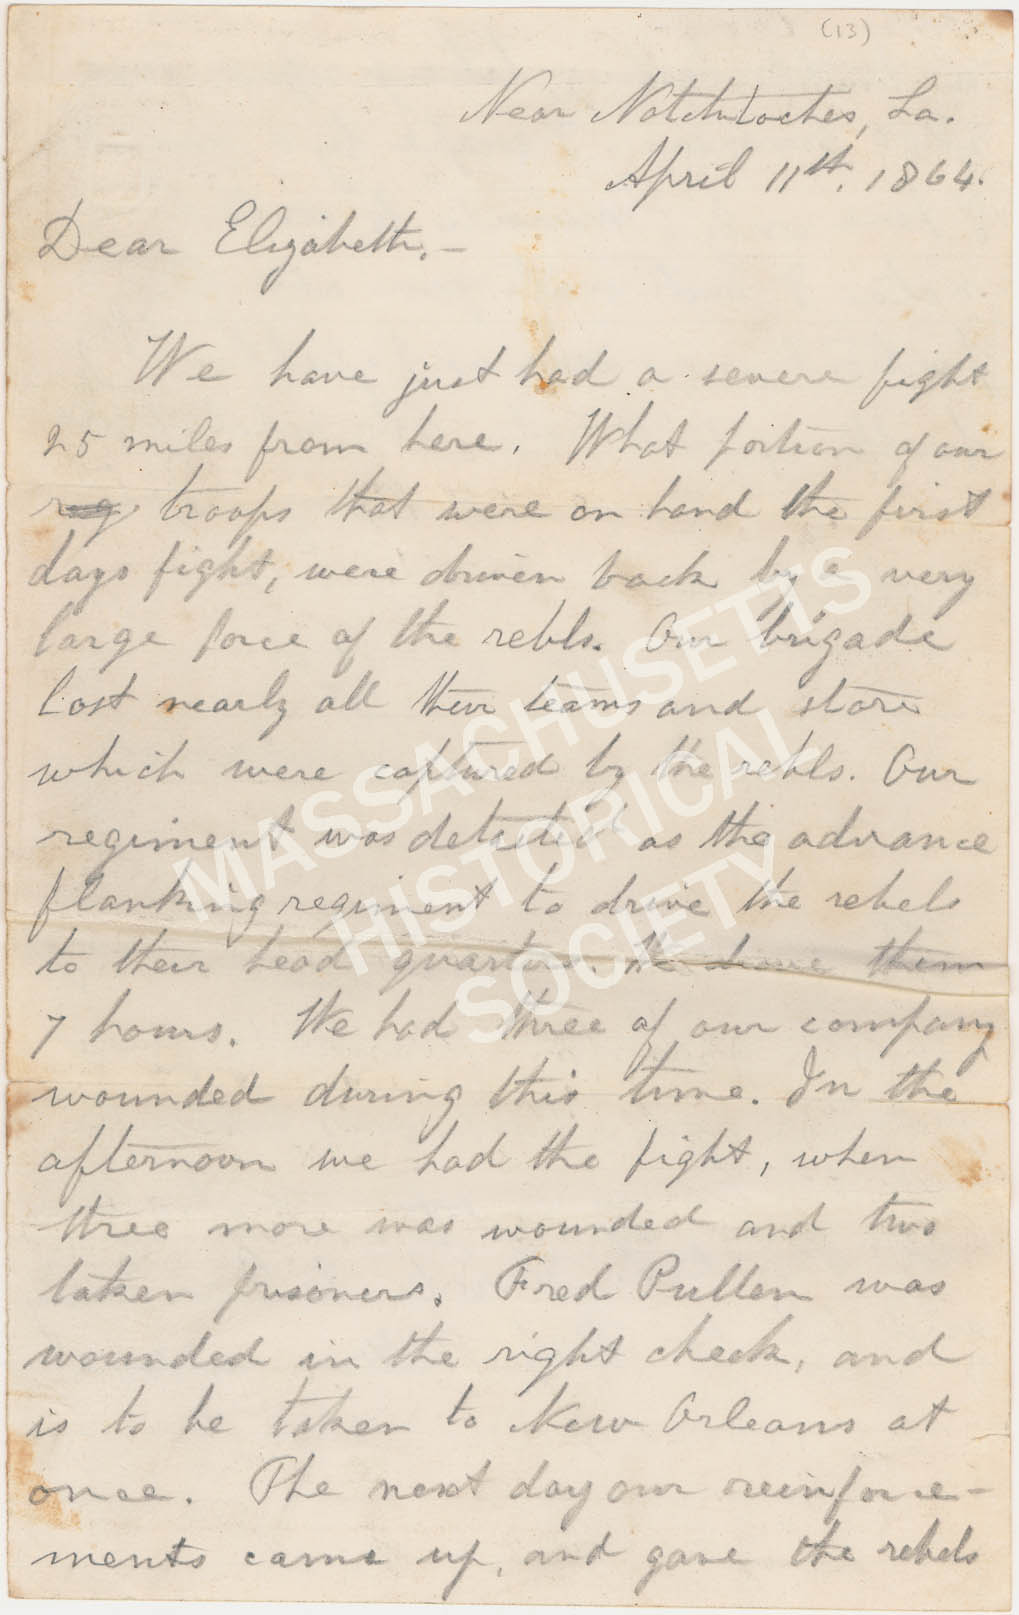 (13)
Near Natchitoches, La.
April 11th. 1864.
Dear Elizabeth,—
We have just had a severe fight
25 miles from here. What portion of our
reg. troops that were on hand the first
days fight, were driven back by a very
large force of the rebls. Our brigade
lost nearly all their teams and stores
which were captured by the rebls. Our
regiment was detailed as the advance
flanking regiment to drive the rebels
to their head quarters. We drove them
7 hours. We had three of our company
wounded during this time. In the
afternoon we had the fight, when
three more was wounded and two
taken prisoners. Fred Pullen was
wounded in the right cheek, and
is to be taken to New Orleans at
once. The next day our reinforce-
ments came up, and gave the rebels
MASSACHUSETTS
HISTORICAL
SOCIETY